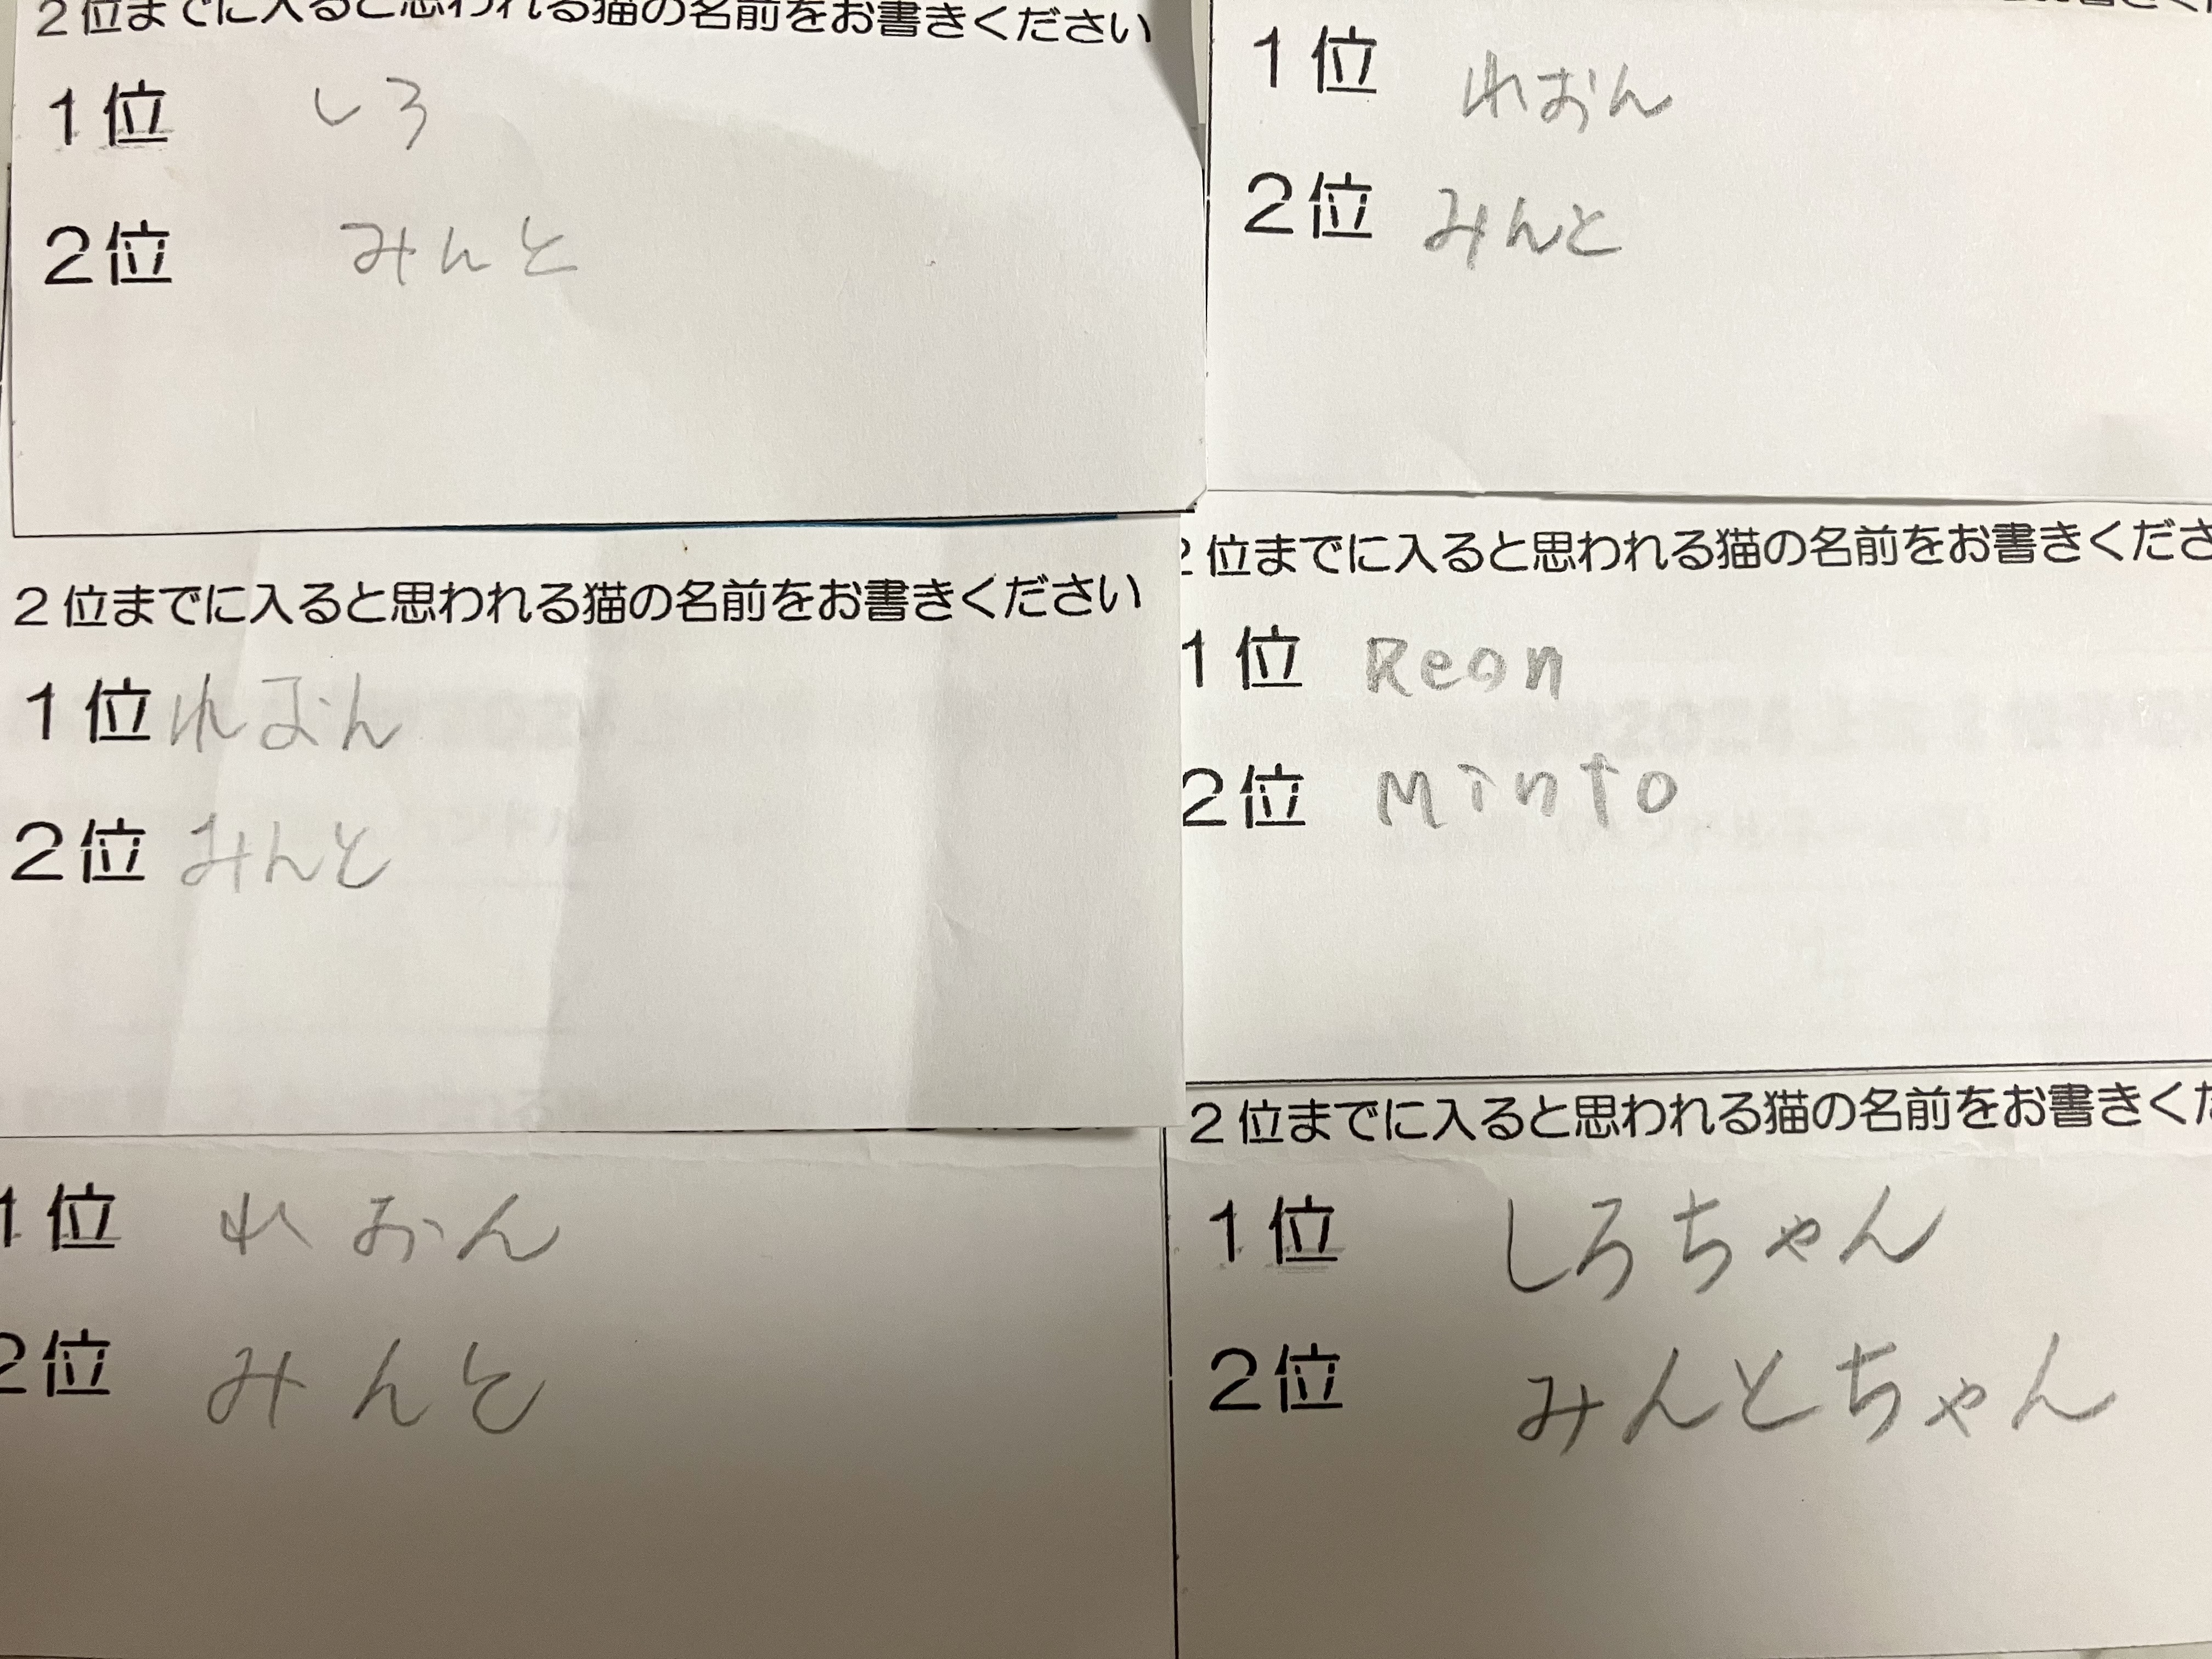 2位までに入ると思われる猫の名前をお書きください
1位 しろ
2位 みんと
1位 れおん
2位 みんと
2位までに入ると思われる猫の名前をお書きください
1位 れおん
2位 みんと
2位までに入ると思われる猫の名前をお書きくださ
1位 Reon
2位 Minto
1位 れおん
2位 みんと
2位までに入ると思われる猫の名前をお書きくだ
1位 しろちゃん
2位 みんとちゃん